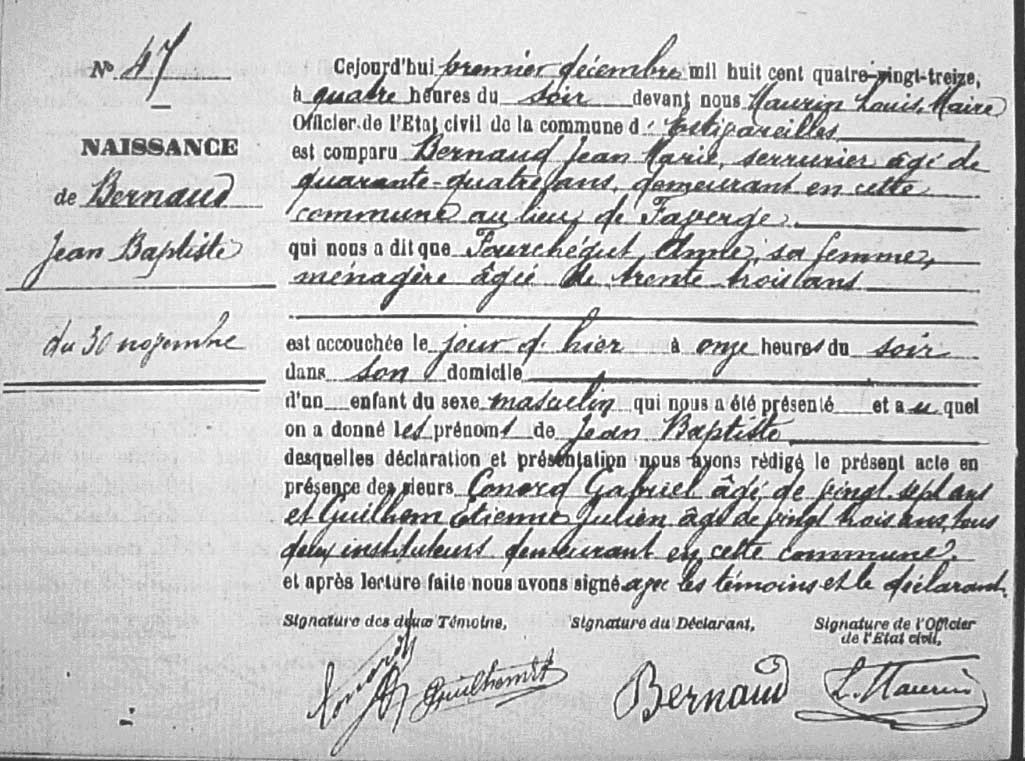 Nº 47
NAISSANCE
de Bernaud
Jean Baptiste
du 30 novembre
Cejourd'hui premier décembre mil huit cent quatre-vingt-treize,
à quatre heures du soir devant nous Maurin Louis, Maire
Officier de l'Etat civil de la commune d' Estivareilles
est comparu Bernaud Jean Marie, serrurier âgé de
quarante-quatre ans, demeurant en cette
commune au lieu de Faverge
qui nous a dit que Fourchégut, Anne, sa femme,
ménagère âgée de trente trois ans
est accouchée le jour d'hier à onze heures du soir
dans son domicile
d'un enfant du sexe masculin qui nous a été présenté et au quel
on a donné les prénoms de Jean Baptiste
desquelles déclaration et présentation nous avons rédigé le présent acte en
présence des sieurs Conord Gabriel âgé de vingt sept ans
et Guilhem Etienne Julien âgé de vingt trois ans, tous
deux instituteurs demeurant en cette commune.
et après lecture faite nous avons signé avec les témoins et le déclarant.
Signature des deux Témoins,
Signature du Déclarant,
Signature de l'Officier
de l'Etat civil,
Conord
Guilhem
Bernaud
L. Maurin